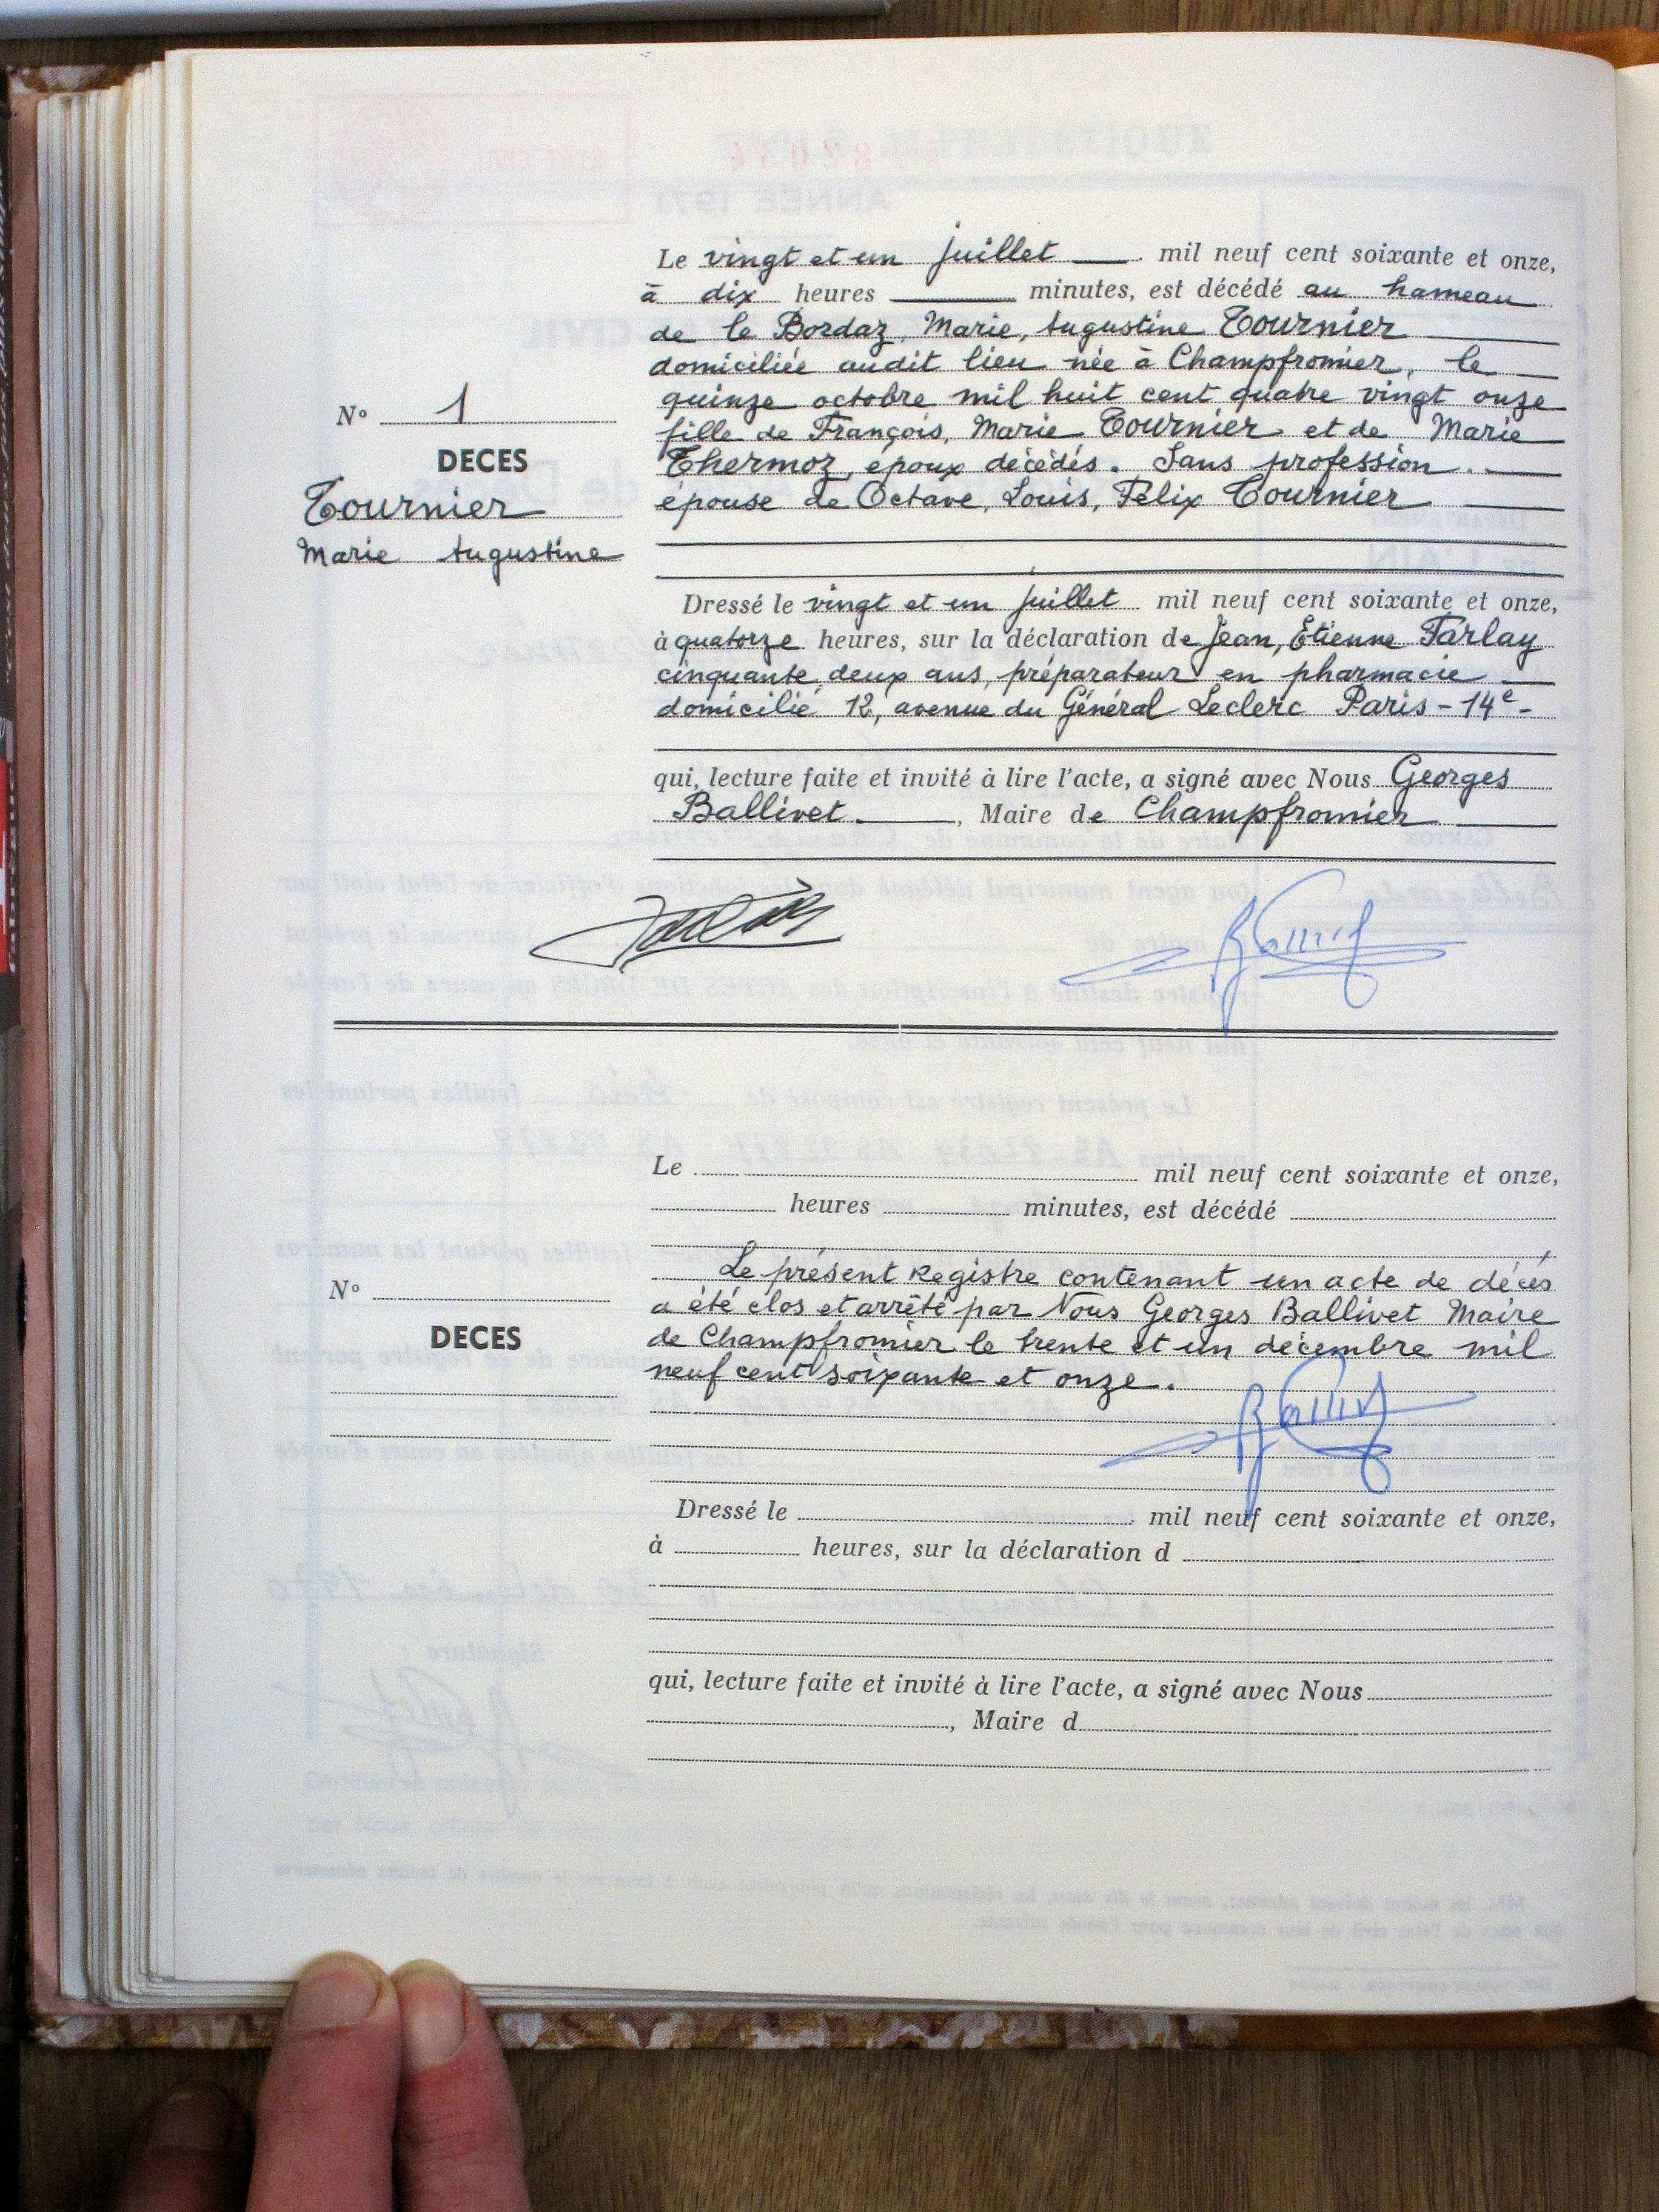 Le vingt et un juillet mil neuf cent soixante et onze,
à dix heures minutes, est décédé au hameau
de le Bordaz, Marie, Augustine Tournier
domiciliée audit lieu née à Champfromier, le
quinze octobre mil huit cent quatre vingt onze
fille de François, Marie Tournier et de Marie
Thermoz, époux décédés. Sans profession.
épouse de Octave, Louis, Félix Tournier
N° 1
DECES
Tournier
Marie Augustine
Dressé le vingt et un juillet mil neuf cent soixante et onze,
à quatorze heures, sur la déclaration de Jean, Etienne Tarlay
cinquante deux ans, préparateur en pharmacie
domicilié 12, avenue du Général Leclerc Paris-14e-
qui, lecture faite et invité à lire l'acte, a signé avec Nous Georges
Ballivet, Maire de Champfromier
Le mil neuf cent soixante et onze,
heures minutes, est décédé
Le présent Registre contenant un acte de décès
a été clos et arrêté par Nous Georges Ballivet Maire
de Champfromier le trente et un décembre mil
neuf cent soixante et onze.
N°
DECES
Dressé le mil neuf cent soixante et onze,
à heures, sur la déclaration d
qui, lecture faite et invité à lire l'acte, a signé avec Nous
, Maire d